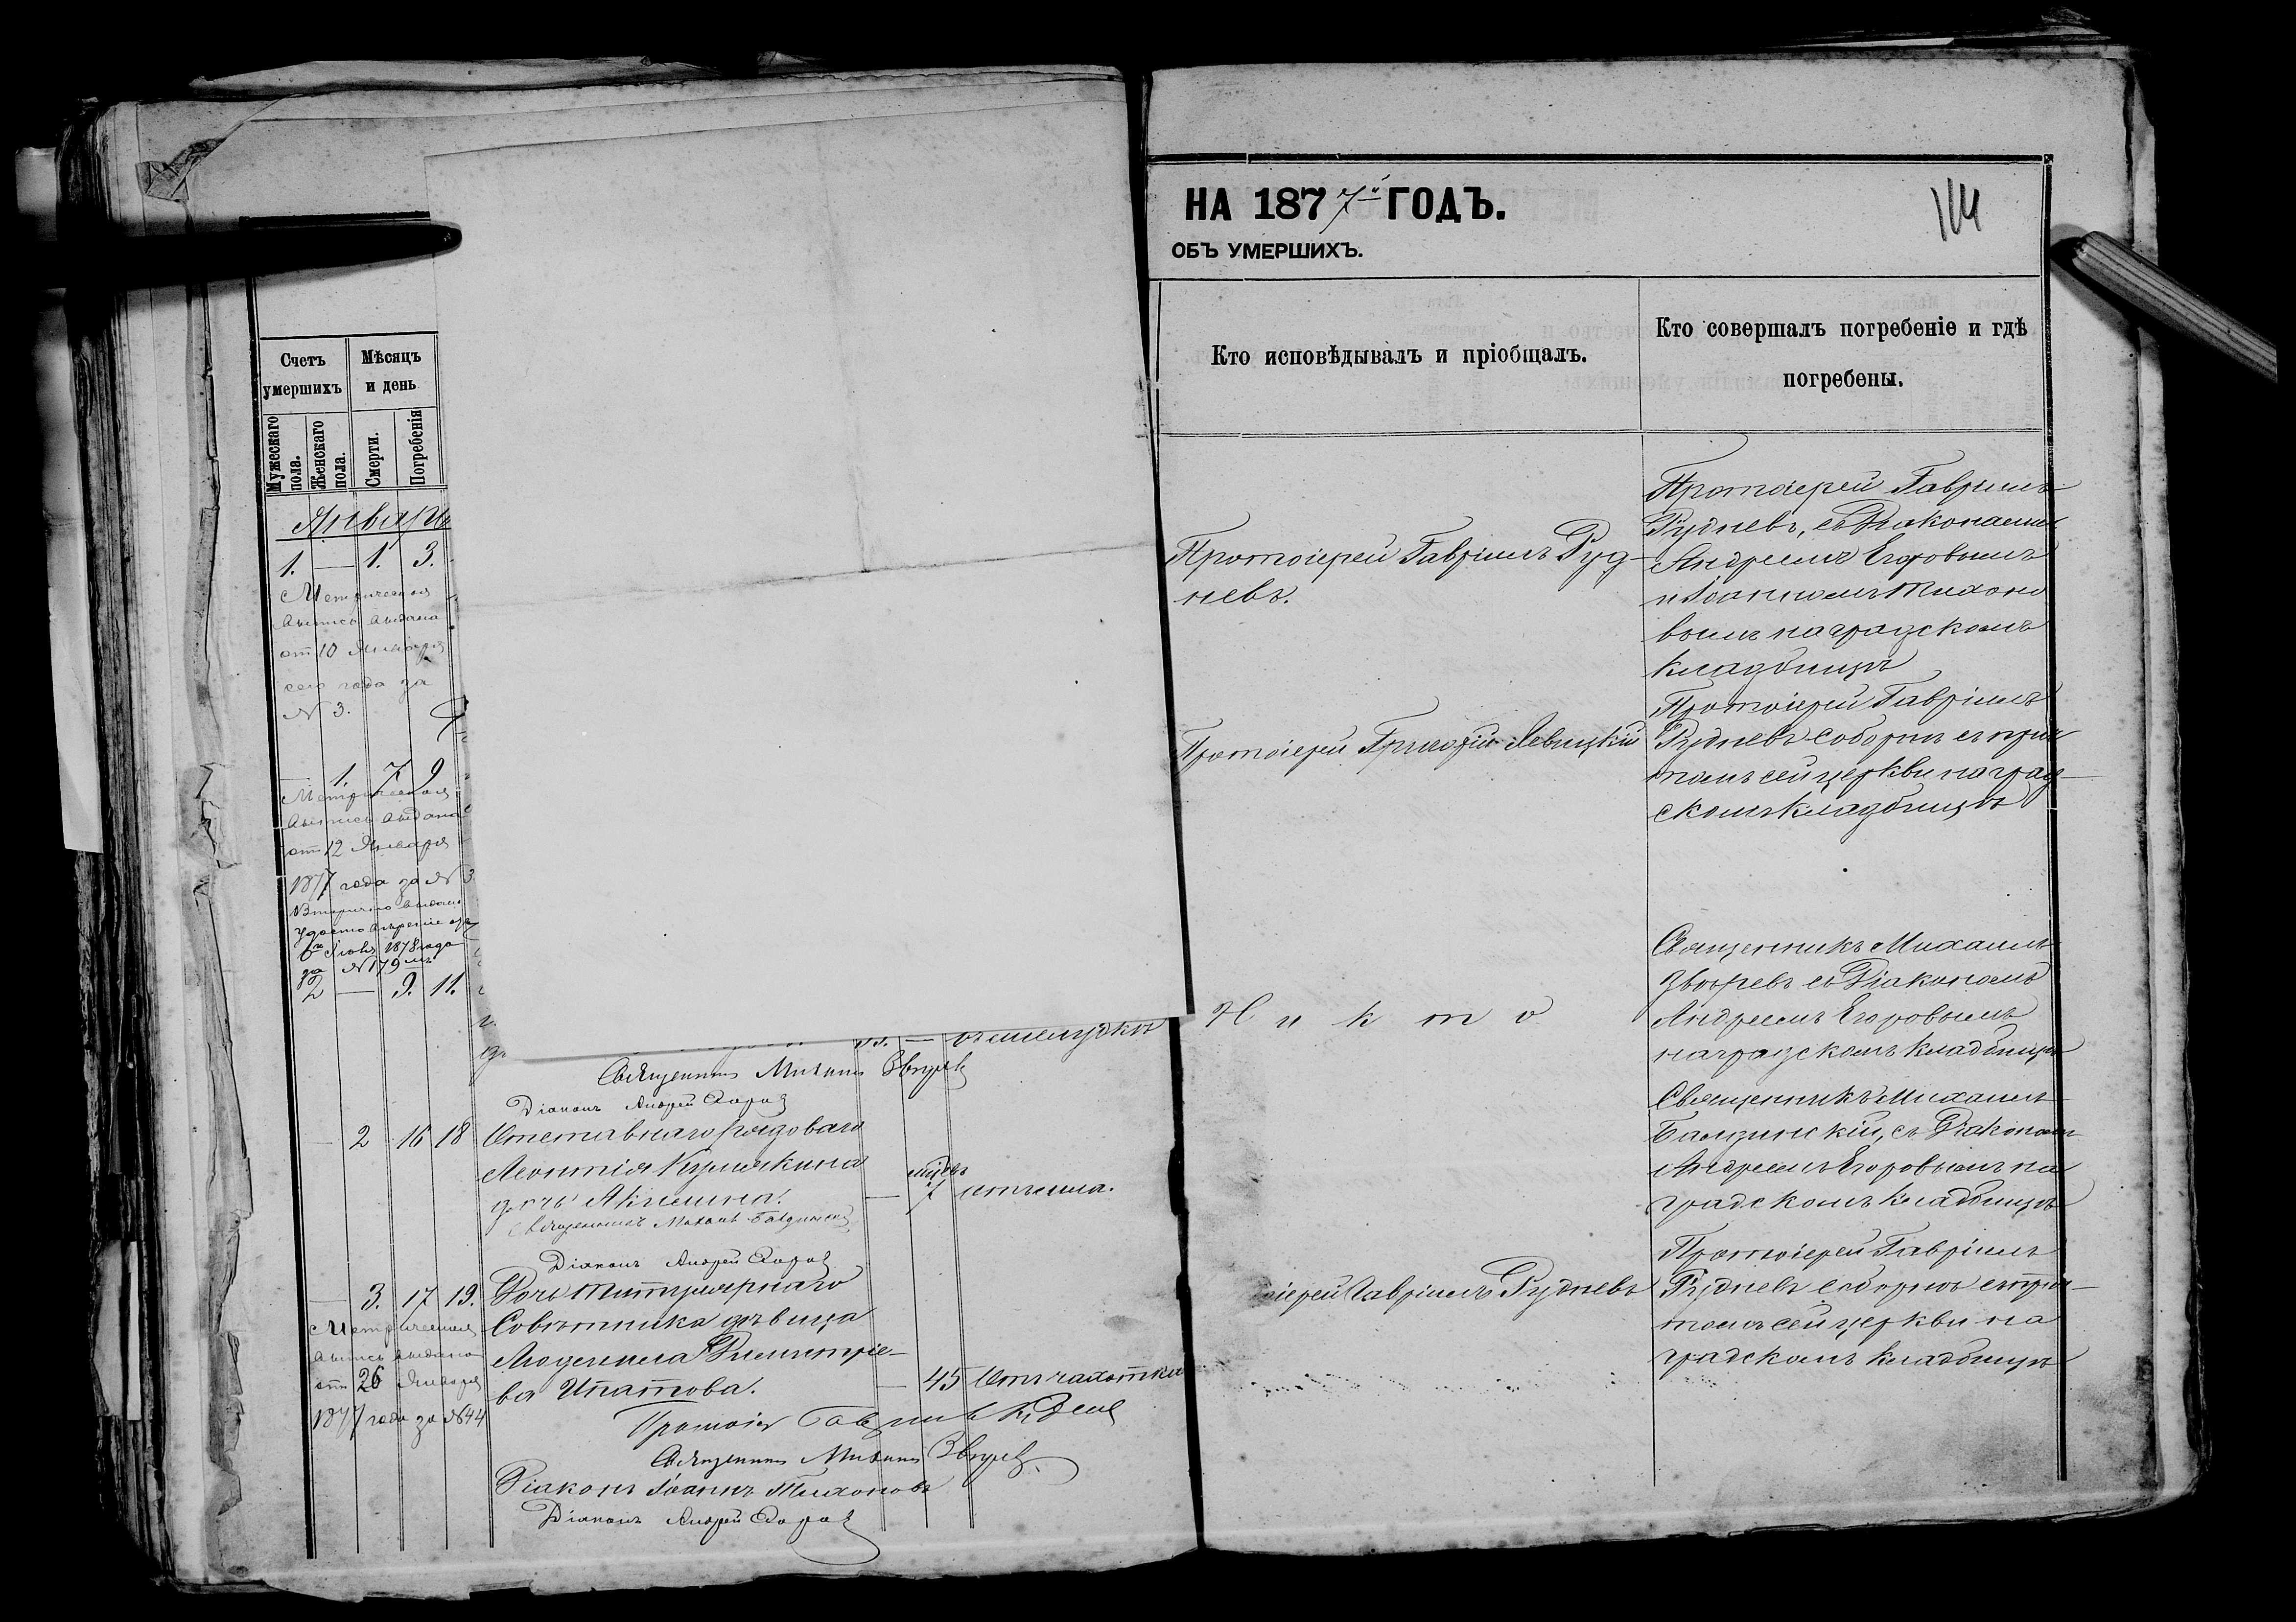 Счетъ
умершихъ
Мѣсяцъ
и день
Мужескаго
пола.
Женскаго
пола.
Смерти.
Погребенія
Январь
1. — 1. 3.
Метрическая
выпись выдана
от 10 Января
сего года за
№ 3.
— 1. 7. 9
Метрическая
выпись выдана
от 12 Января
1877 года за № 3
Вторично выдано
удостовѣреніе
Іюня 1878 года
за № 179
2 — 9. 11.
Священникъ Михаилъ Звѣревъ
Діаконъ Андрей Егоровъ
— 2 16 18 Отставнаго рядоваго
Леонтія
дочь Акилина. — 7 мѣсяц. отъ кашля.
Священникъ Михаилъ
Діаконъ Андрей Егоровъ
— 3. 17 19. Дочь Титулярнаго
Метрическая Совѣтника дѣвица
выпись выдана Людмила Димитріе-
от 26 Января ва Ипатова. — 45 Отъ чахотки
1877 года за № 44
Протоіерей Гавріилъ Рудневъ
Священникъ Михаилъ Звѣревъ
Діаконъ Іоаннъ Тихоновъ
Діаконъ Андрей Егоровъ
НА 1877й ГОДЪ.
ОБЪ УМЕРШИХЪ.
114
Кто исповѣдывалъ и пріобщалъ.
Кто совершалъ погребеніе и гдѣ
погребены.
Протоіерей Гавріилъ Руд-
невъ.
Протоіерей Гавріилъ
Рудневъ, съ Діаконами
Андреемъ Егоровымъ
и Іоанномъ Тихоно
вымъ на градскомъ
кладбищѣ
Протоіерей Григорій Левицкій
Протоіерей Гавріилъ
Рудневъ соборнѣ съ прич
томъ сей церкви на град-
скомъ кладбищѣ
Никто
Священникъ Михаилъ
Звѣревъ съ Діакономъ
Андреемъ Егоровымъ
на градскомъ кладбищѣ
Священникъ Михаилъ
съ Діакономъ
Андреемъ Егоровымъ на
градскомъ кладбищѣ
іерей Гавріилъ Рудневъ
Протоіерей Гавріилъ
Рудневъ соборнѣ съ прич-
томъ сей церкви на
градскомъ кладбищѣ